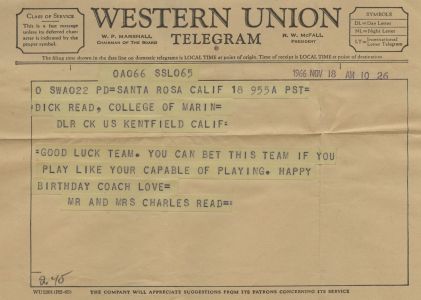 CLASS OF SERVICE
This is a fast message
unless its deferred char-
acter is indicated by the
proper symbol.
WESTERN UNION
TELEGRAM
W. P. MARSHALL
CHAIRMAN OF THE BOARD
R. W. McFALL
PRESIDENT
SYMBOLS
DL=Day Letter
NL=Night Letter
LT=International Letter Telegram
The filing time shown in the date line on domestic telegrams is LOCAL TIME at point of origin. Time of receipt is LOCAL TIME at point of destination
OA066 SSL065
1966 NOV 18 AM 10 26
O SWA022 PD=SANTA ROSA CALIF 18 955A PST=
DICK READ, COLLEGE OF MARIN=
DLR CK US KENTFIELD CALIF=
=GOOD LUCK TEAM. YOU CAN BET THIS TEAM IF YOU
PLAY LIKE YOUR CAPABLE OF PLAYING. HAPPY
BIRTHDAY COACH LOVE=
MR AND MRS CHARLES READ=
245
THE COMPANY WILL APPRECIATE SUGGESTIONS FROM ITS PATRONS CONCERNING ITS SERVICE